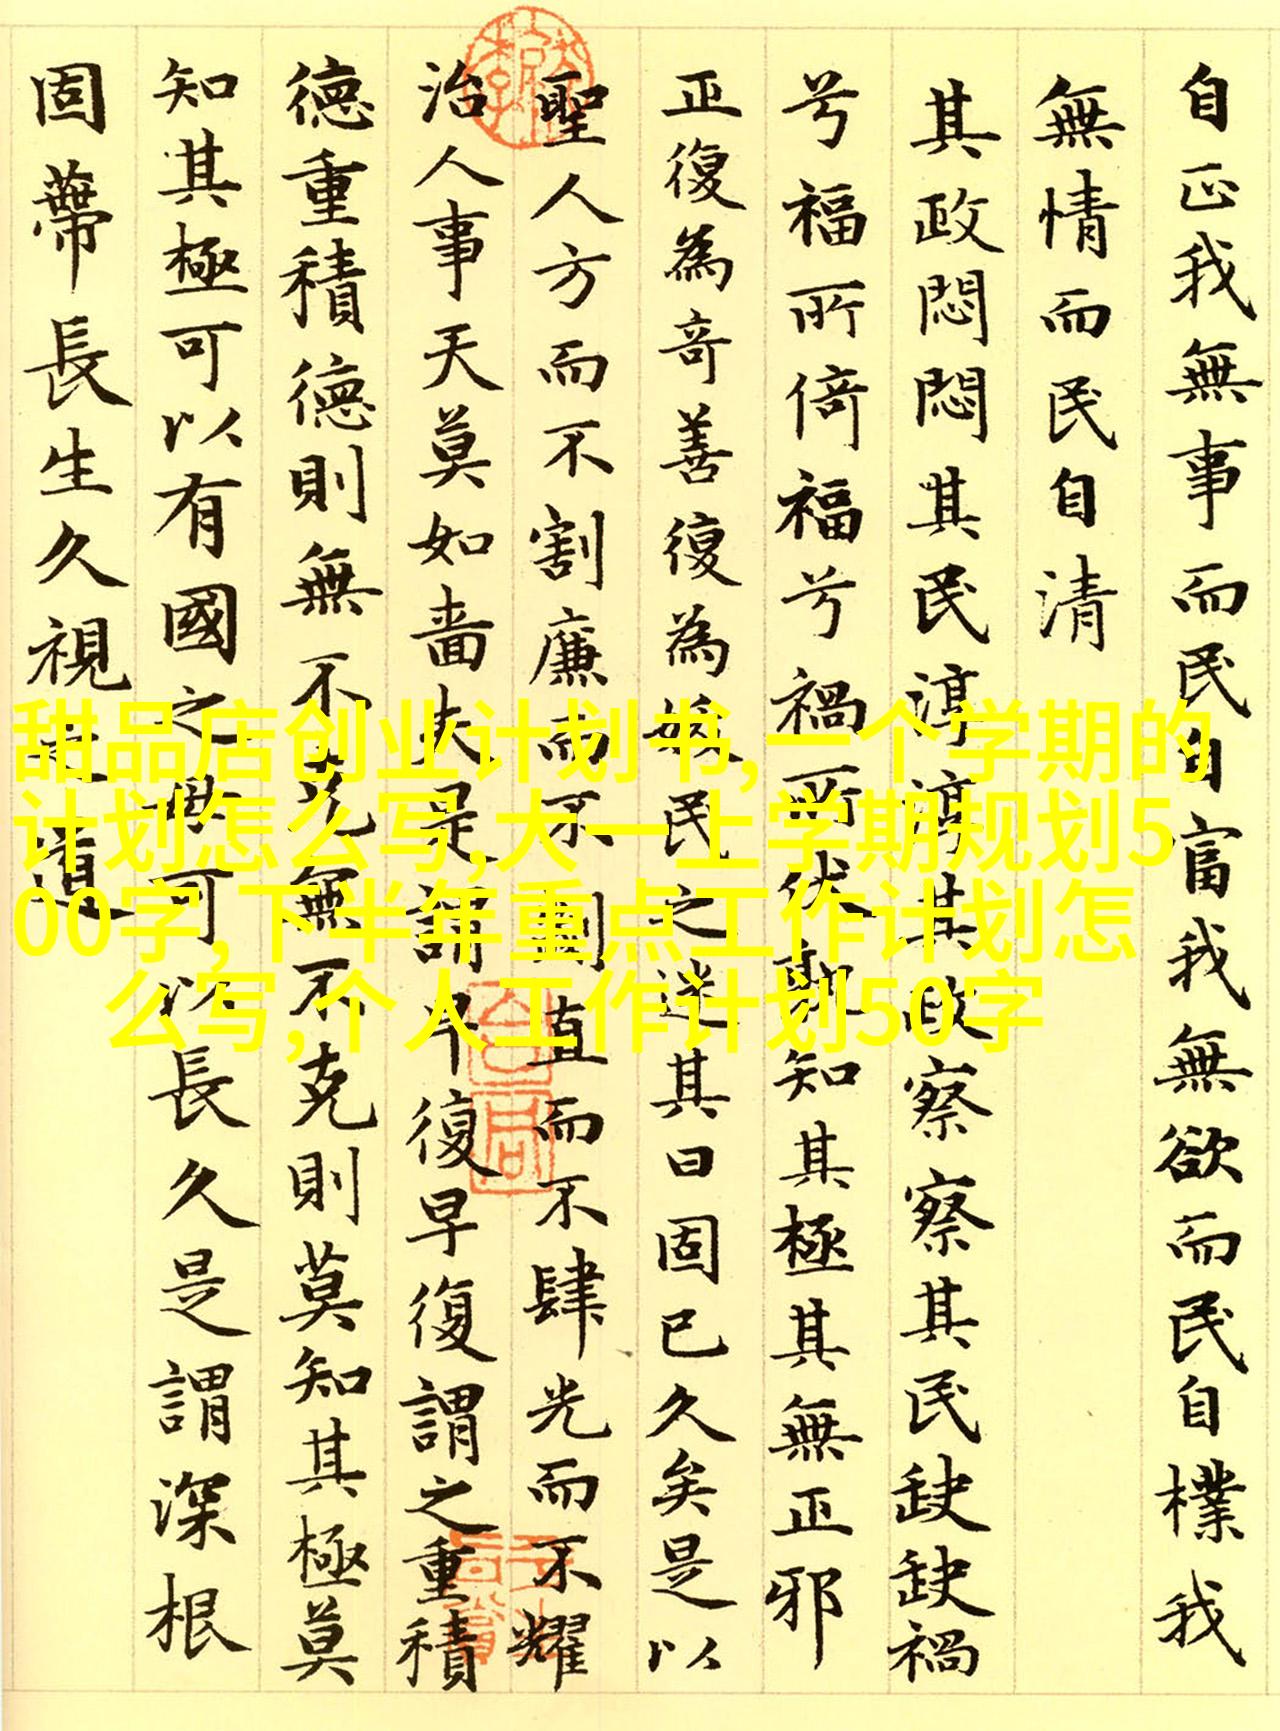 自正我無事而民自富我無欲而民自樸我
無情而民自清
其政悶悶其民淳淳其政察察其民缺缺禍
兮福所倚福兮禍所伏孰知其極其無正邪
正復為奇善復為妖民之迷其日固已久矣是以
聖人方而不割廉而不劌直而不肆光而不耀
治人事天莫如嗇夫是謂早復早復謂之重積
德重積德則無不克無不克則莫知其極莫
知其極可以有國之母可以長久是謂深根
固蔕長生久視之道
甜品店创业计划书,一个学期的
计划怎么写,大一上学期规划5
00字,下半年重点工作计划怎
么写,个人工作计划50字